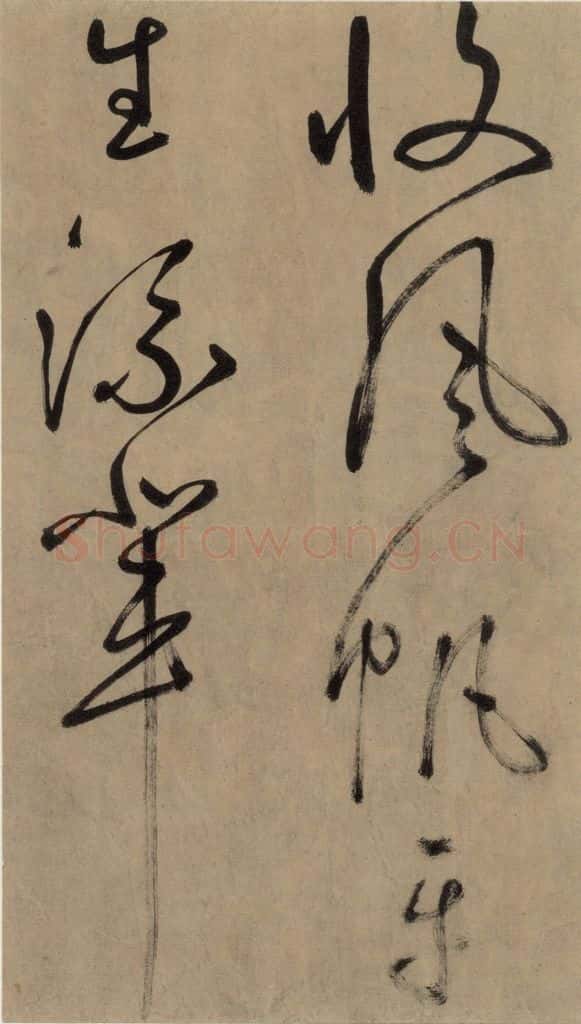 收風帆平
生流輩
Shufawang.CN